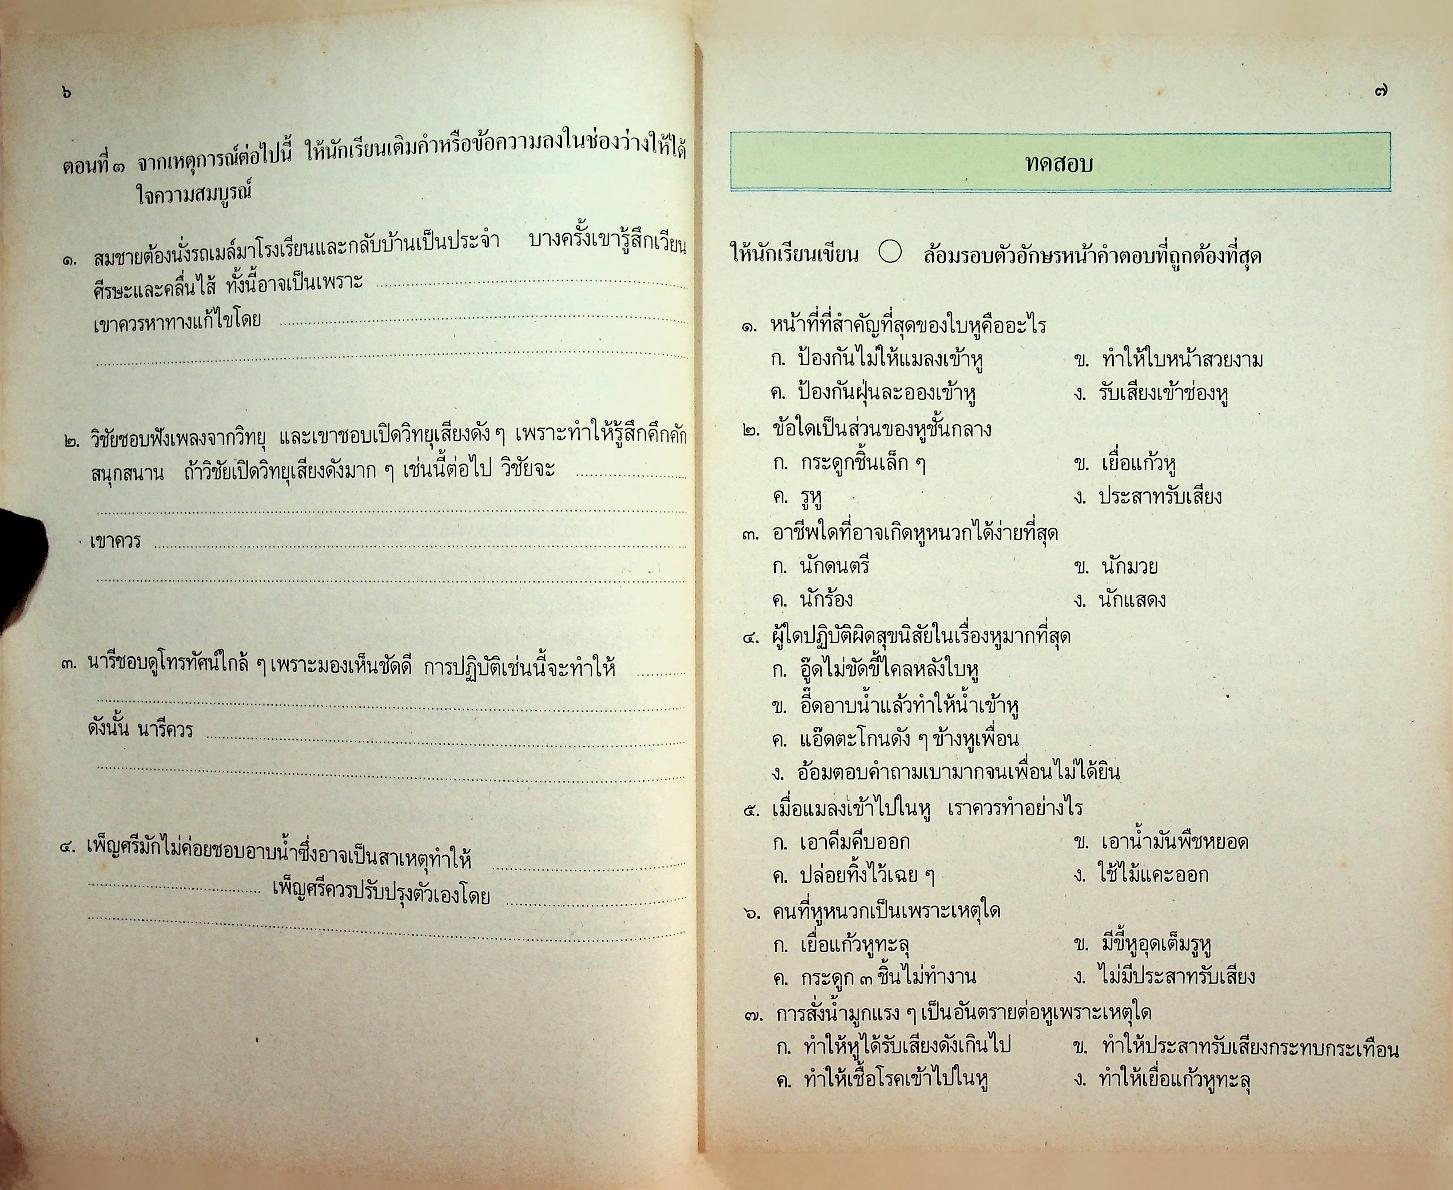 ๖
ตอนที่ ๓ จากเหตุการณ์ต่อไปนี้ ให้นักเรียนเติมคำหรือข้อความลงในช่องว่างให้ได้
ใจความสมบูรณ์
๑. สมชายต้องนั่งรถเมล์มาโรงเรียนและกลับบ้านเป็นประจำ บางครั้งเขารู้สึกเวียน
ศีรษะและคลื่นไส้ ทั้งนี้อาจเป็นเพราะ
เขาควรหาทางแก้ไขโดย
๒. วิชัยชอบฟังเพลงจากวิทยุ และเขาชอบเปิดวิทยุเสียงดัง ๆ เพราะทำให้รู้สึกคึกคัก
สนุกสนาน ถ้าวิชัยเปิดวิทยุเสียงดังมาก ๆ เช่นนี้ต่อไป วิชัยจะ
เขาควร
๓. นารีชอบดูโทรทัศน์ใกล้ ๆ เพราะมองเห็นชัดดี การปฏิบัติเช่นนี้จะทำให้
ดังนั้น นารีควร
๔. เพ็ญศรีมักไม่ค่อยชอบอาบน้ำซึ่งอาจเป็นสาเหตุทำให้
เพ็ญศรีควรปรับปรุงตัวเองโดย
๗
ทดสอบ
ให้นักเรียนเขียน ○ ล้อมรอบตัวอักษรหน้าคำตอบที่ถูกต้องที่สุด
๑. หน้าที่ที่สำคัญที่สุดของใบหูคืออะไร
ก. ป้องกันไม่ให้แมลงเข้าหู ข. ทำให้ใบหน้าสวยงาม
ค. ป้องกันฝุ่นละอองเข้าหู ง. รับเสียงเข้าช่องหู
๒. ข้อใดเป็นส่วนของหูชั้นกลาง
ก. กระดูกชิ้นเล็ก ๆ ข. เยื่อแก้วหู
ค. รูหู ง. ประสาทรับเสียง
๓. อาชีพใดที่อาจเกิดหูหนวกได้ง่ายที่สุด
ก. นักดนตรี ข. นักมวย
ค. นักร้อง ง. นักแสดง
๔. ผู้ใดปฏิบัติผิดสุขนิสัยในเรื่องหูมากที่สุด
ก. อู๊ดไม่ขัดขี้ไคลหลังใบหู
ข. อี๊ดอาบน้ำแล้วทำให้น้ำเข้าหู
ค. แอ๊ดตะโกนดัง ๆ ข้างหูเพื่อน
ง. อ้อมตอบคำถามเบามากจนเพื่อนไม่ได้ยิน
๕. เมื่อแมลงเข้าไปในหู เราควรทำอย่างไร
ก. เอาคีมคีบออก ข. เอาน้ำมันพืชหยอด
ค. ปล่อยทิ้งไว้เฉย ๆ ง. ใช้ไม้แคะออก
๖. คนที่หูหนวกเป็นเพราะเหตุใด
ก. เยื่อแก้วหูทะลุ ข. มีขี้หูอุดเต็มรูหู
ค. กระดูก ๓ ชิ้นไม่ทำงาน ง. ไม่มีประสาทรับเสียง
๗. การสั่งน้ำมูกแรง ๆ เป็นอันตรายต่อหูเพราะเหตุใด
ก. ทำให้หูได้รับเสียงดังเกินไป ข. ทำให้ประสาทรับเสียงกระทบกระเทือน
ค. ทำให้เชื้อโรคเข้าไปในหู ง. ทำให้เยื่อแก้วหูทะลุ